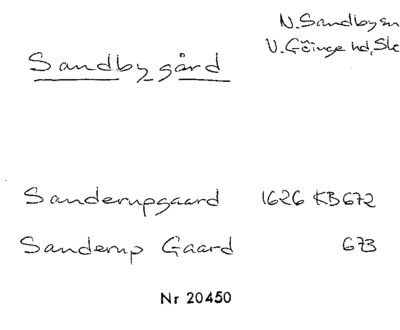 N. Sandby sn
Sandbygård V. Göinge hd, Sk
Sanderupgaard 1626 KB 672
Sanderup Gaard 673
Nr 20450